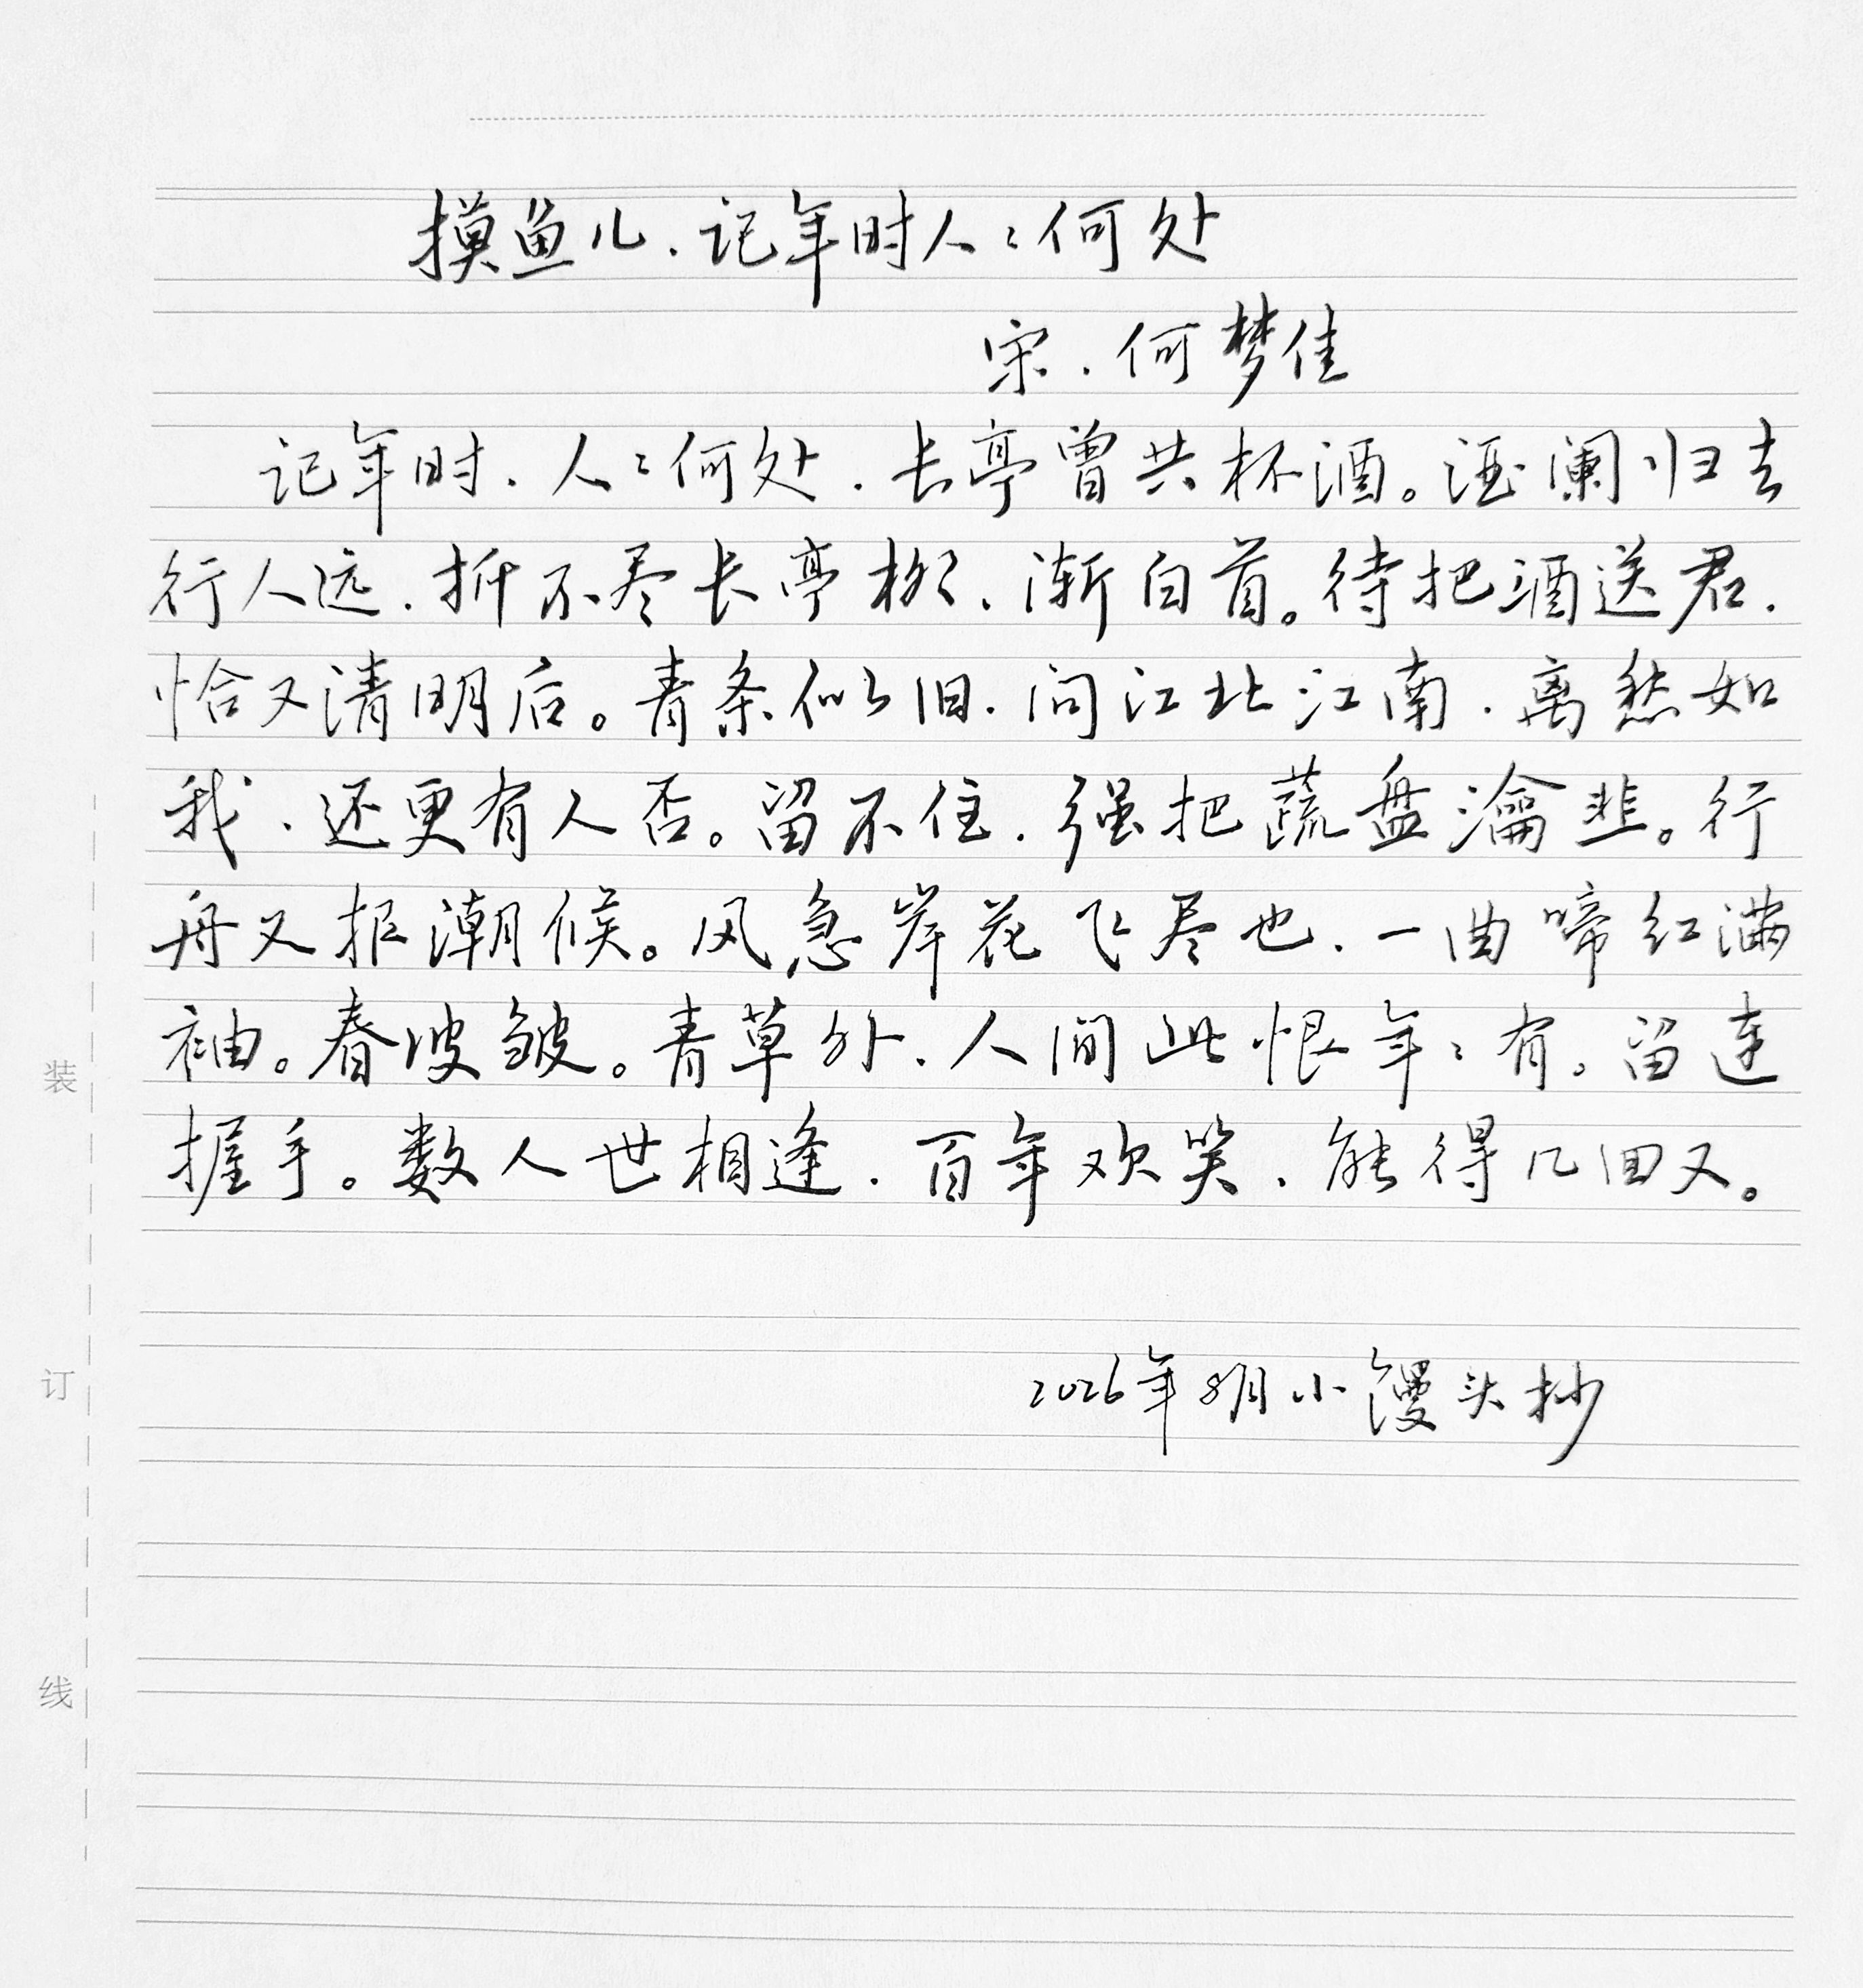 摸鱼儿.记年时人々何处
宋.何梦佳
记年时.人々何处.长亭曾共杯酒。酒阑归去
行人远.折不尽长亭柳.渐白首。待把酒送君.
恰又清明后。青条似旧.问江北江南.离愁如
我.还更有人否。留不住.强把蔬盘瀹韭。行
舟又报潮候。风急岸花飞尽也.一曲啼红满
袖。春波皱。青草外.人间此恨年々有。留连
握手。数人世相逢.百年欢笑.能得几回又。
2026年8月小馒头抄
装
订
线